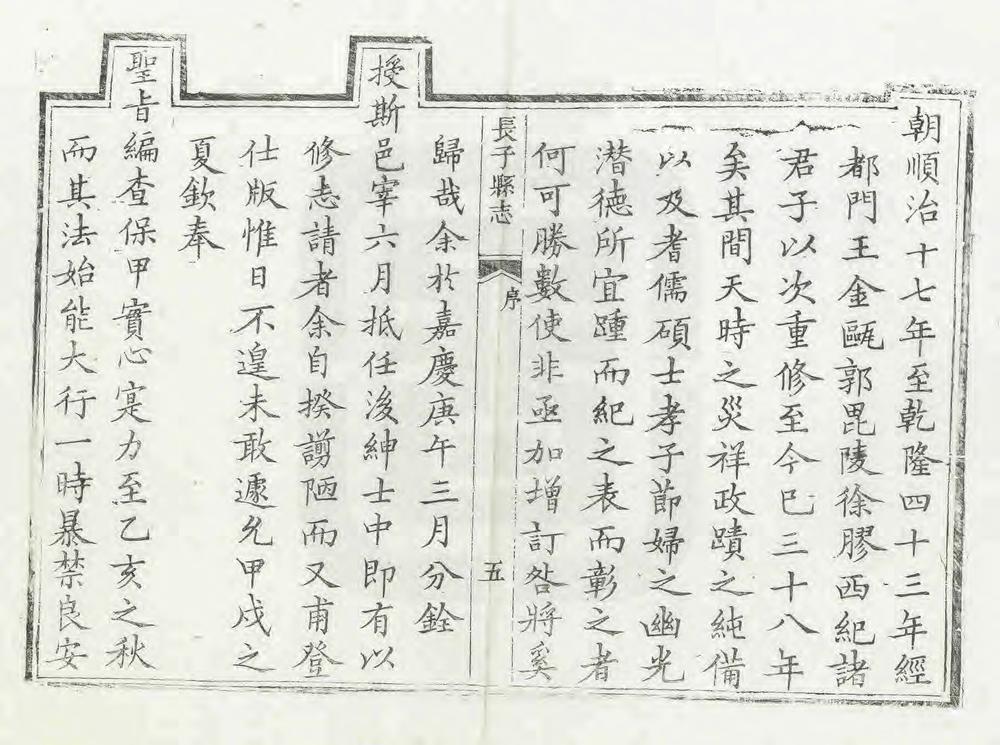 朝順治十七年至乾隆四十三年經
都門王金甌郭毘陵徐膠西紀諸
君子以次重修至今已三十八年
矣其間天時之災祥政蹟之純備
以及耆儒碩士孝子節婦之幽光
潛德所宜踵而紀之表而彰之者
何可勝數使非亟加增訂咎將奚
長子縣志
序
五
歸哉余於嘉慶庚午三月分銓
授斯邑宰六月抵任後紳士中即有以
修志請者余自揆謭陋而又甫登
仕版惟日不遑未敢遽允甲戌之
夏欽奉
聖旨編查保甲實心寔力至乙亥之秋
而其法始能大行一時暴禁良安